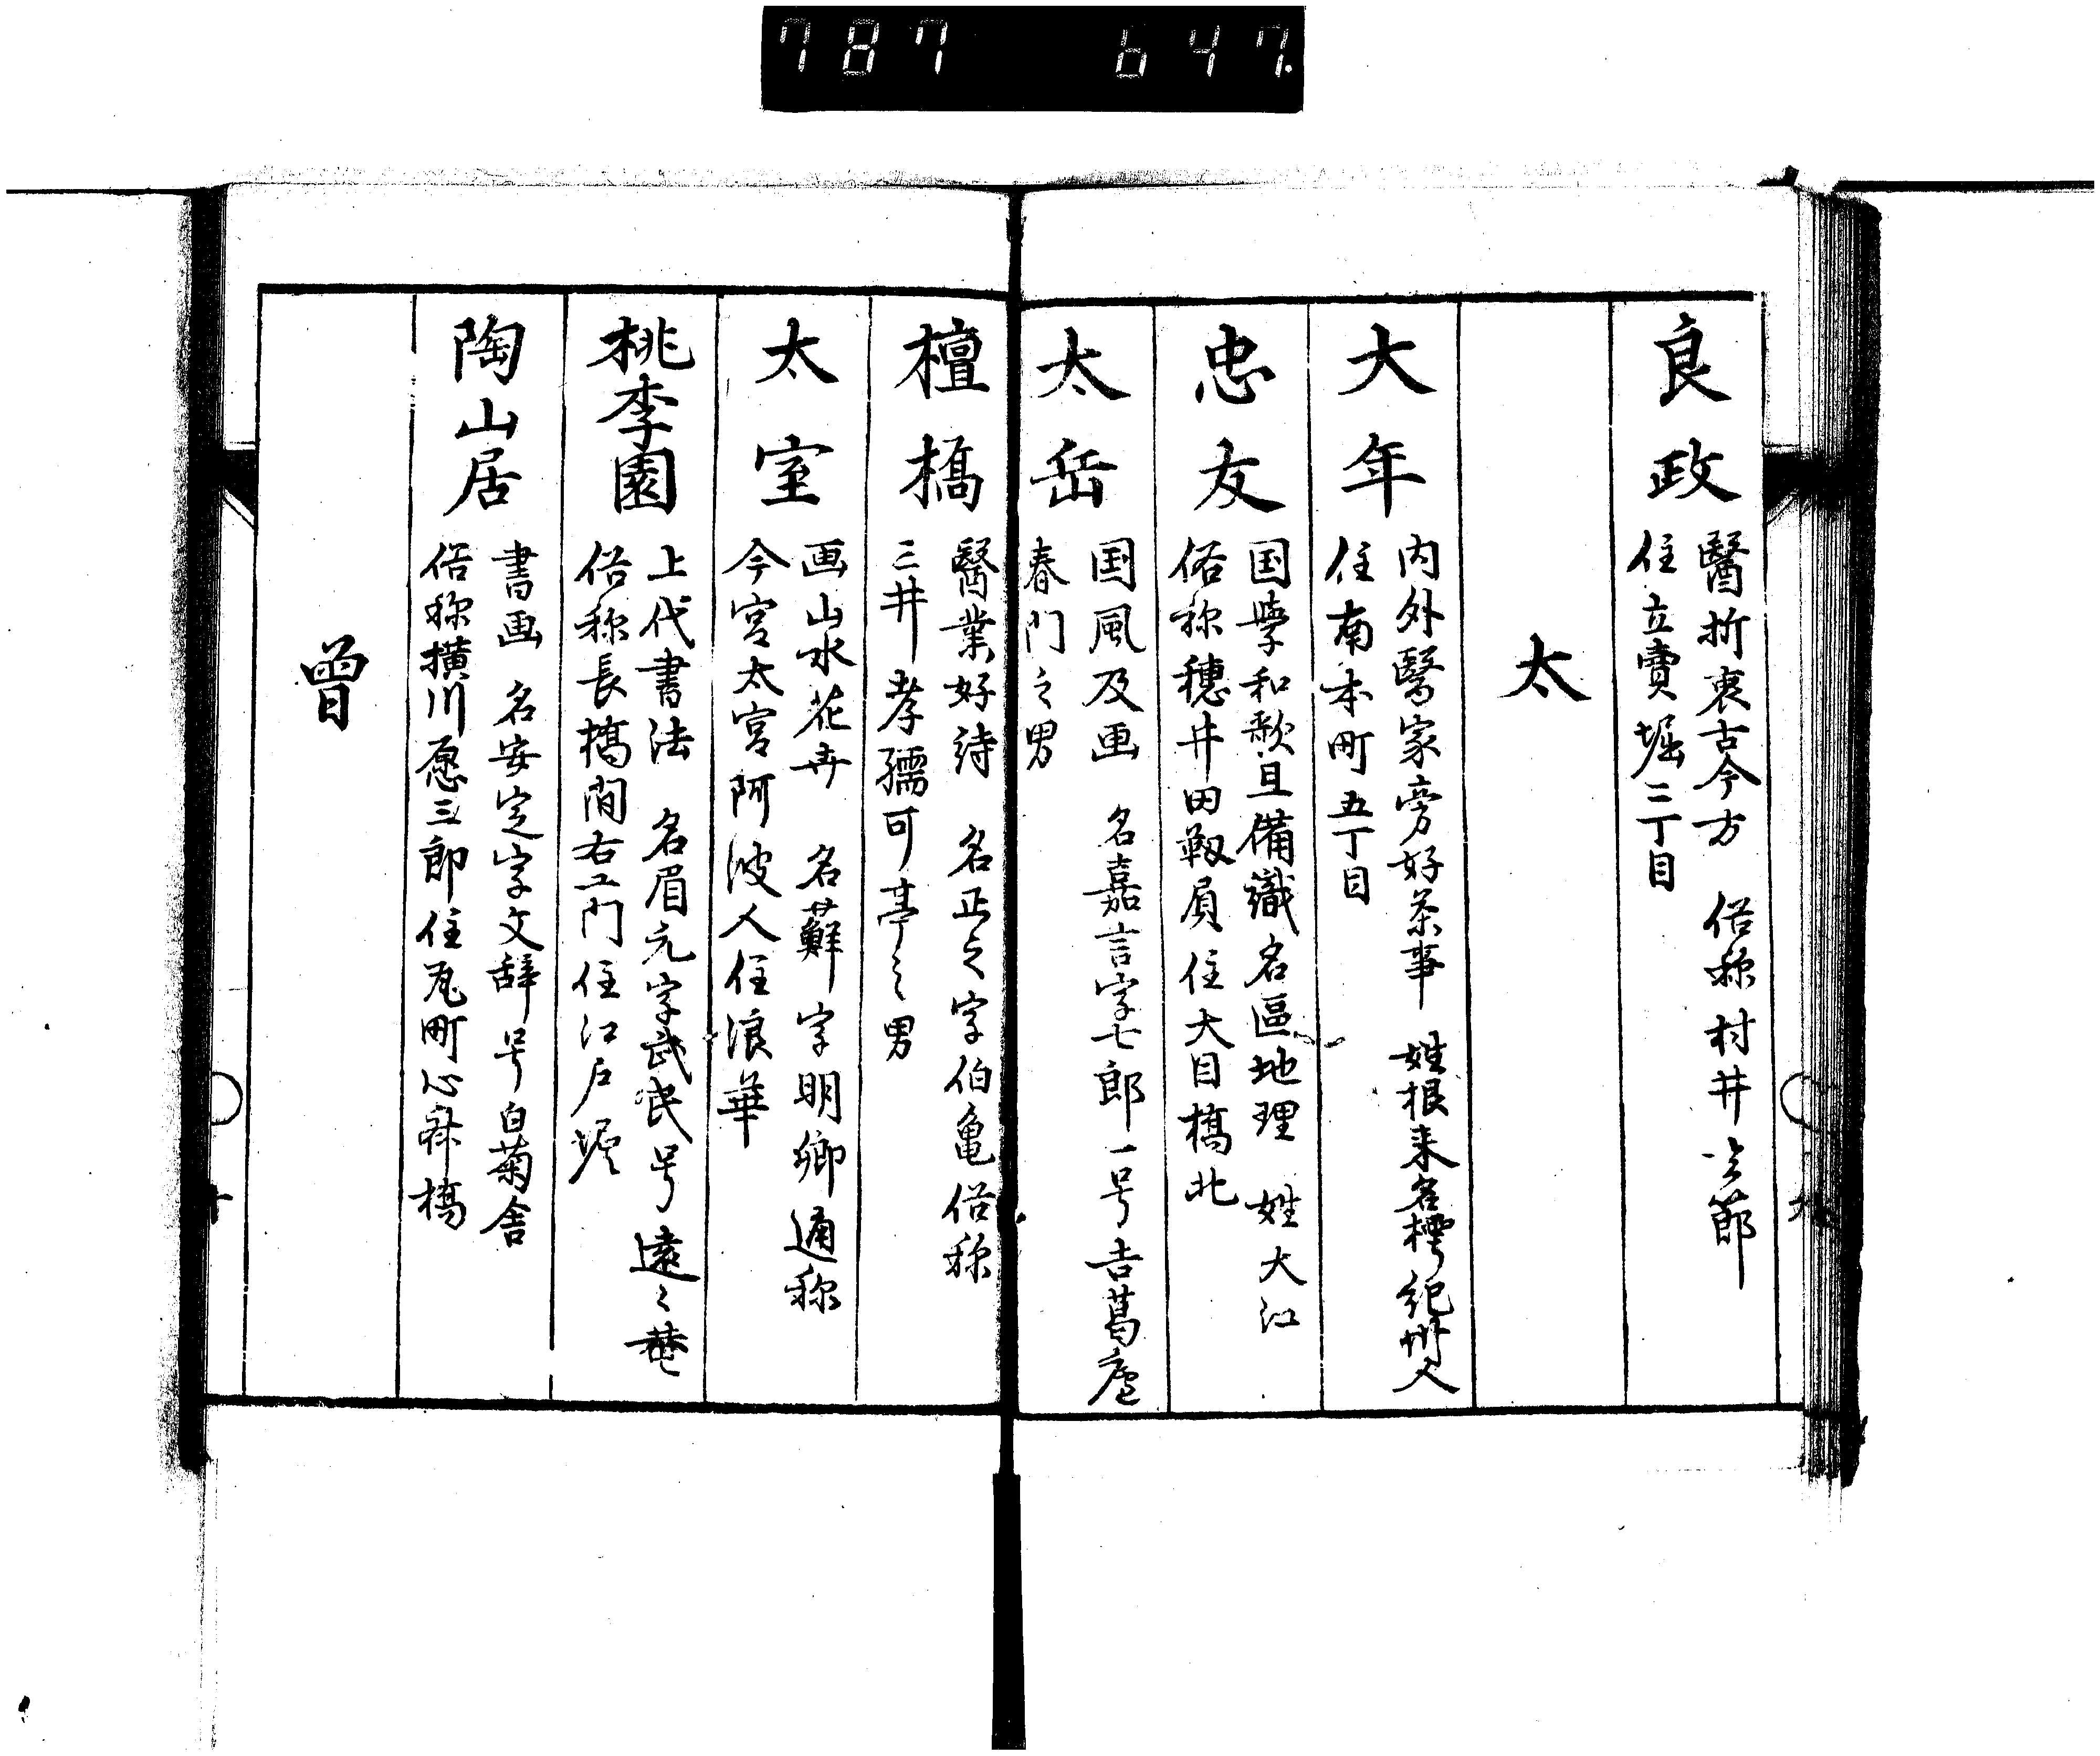 787 647.
良政
醫折衷古今方 俗称村井 節
住立賣堀三丁目
太
大年
内外醫家旁好茶事 姓根来名樗紀州人
住南本町五丁目
忠友
国學和歌且備識名區地理 姓大江
俗称穗井田靱屓住大目橋北
太岳
国風及画 名嘉言字七郎一号吉葛廬
春門之男
檀橋
醫業好詩 名正之字伯亀俗称
三井孝孺可亭之男
太室
画山水花卉 名蘚字明卿通称
今宮太宮阿波人住浪華
桃李園
上代書法 名眉元字武民号遠々菴
俗称長橋間右エ門住江戸堀
陶山居
書画 名安定字文辞号白菊舎
俗称横川愿三郎住瓦町心斎橋
曽